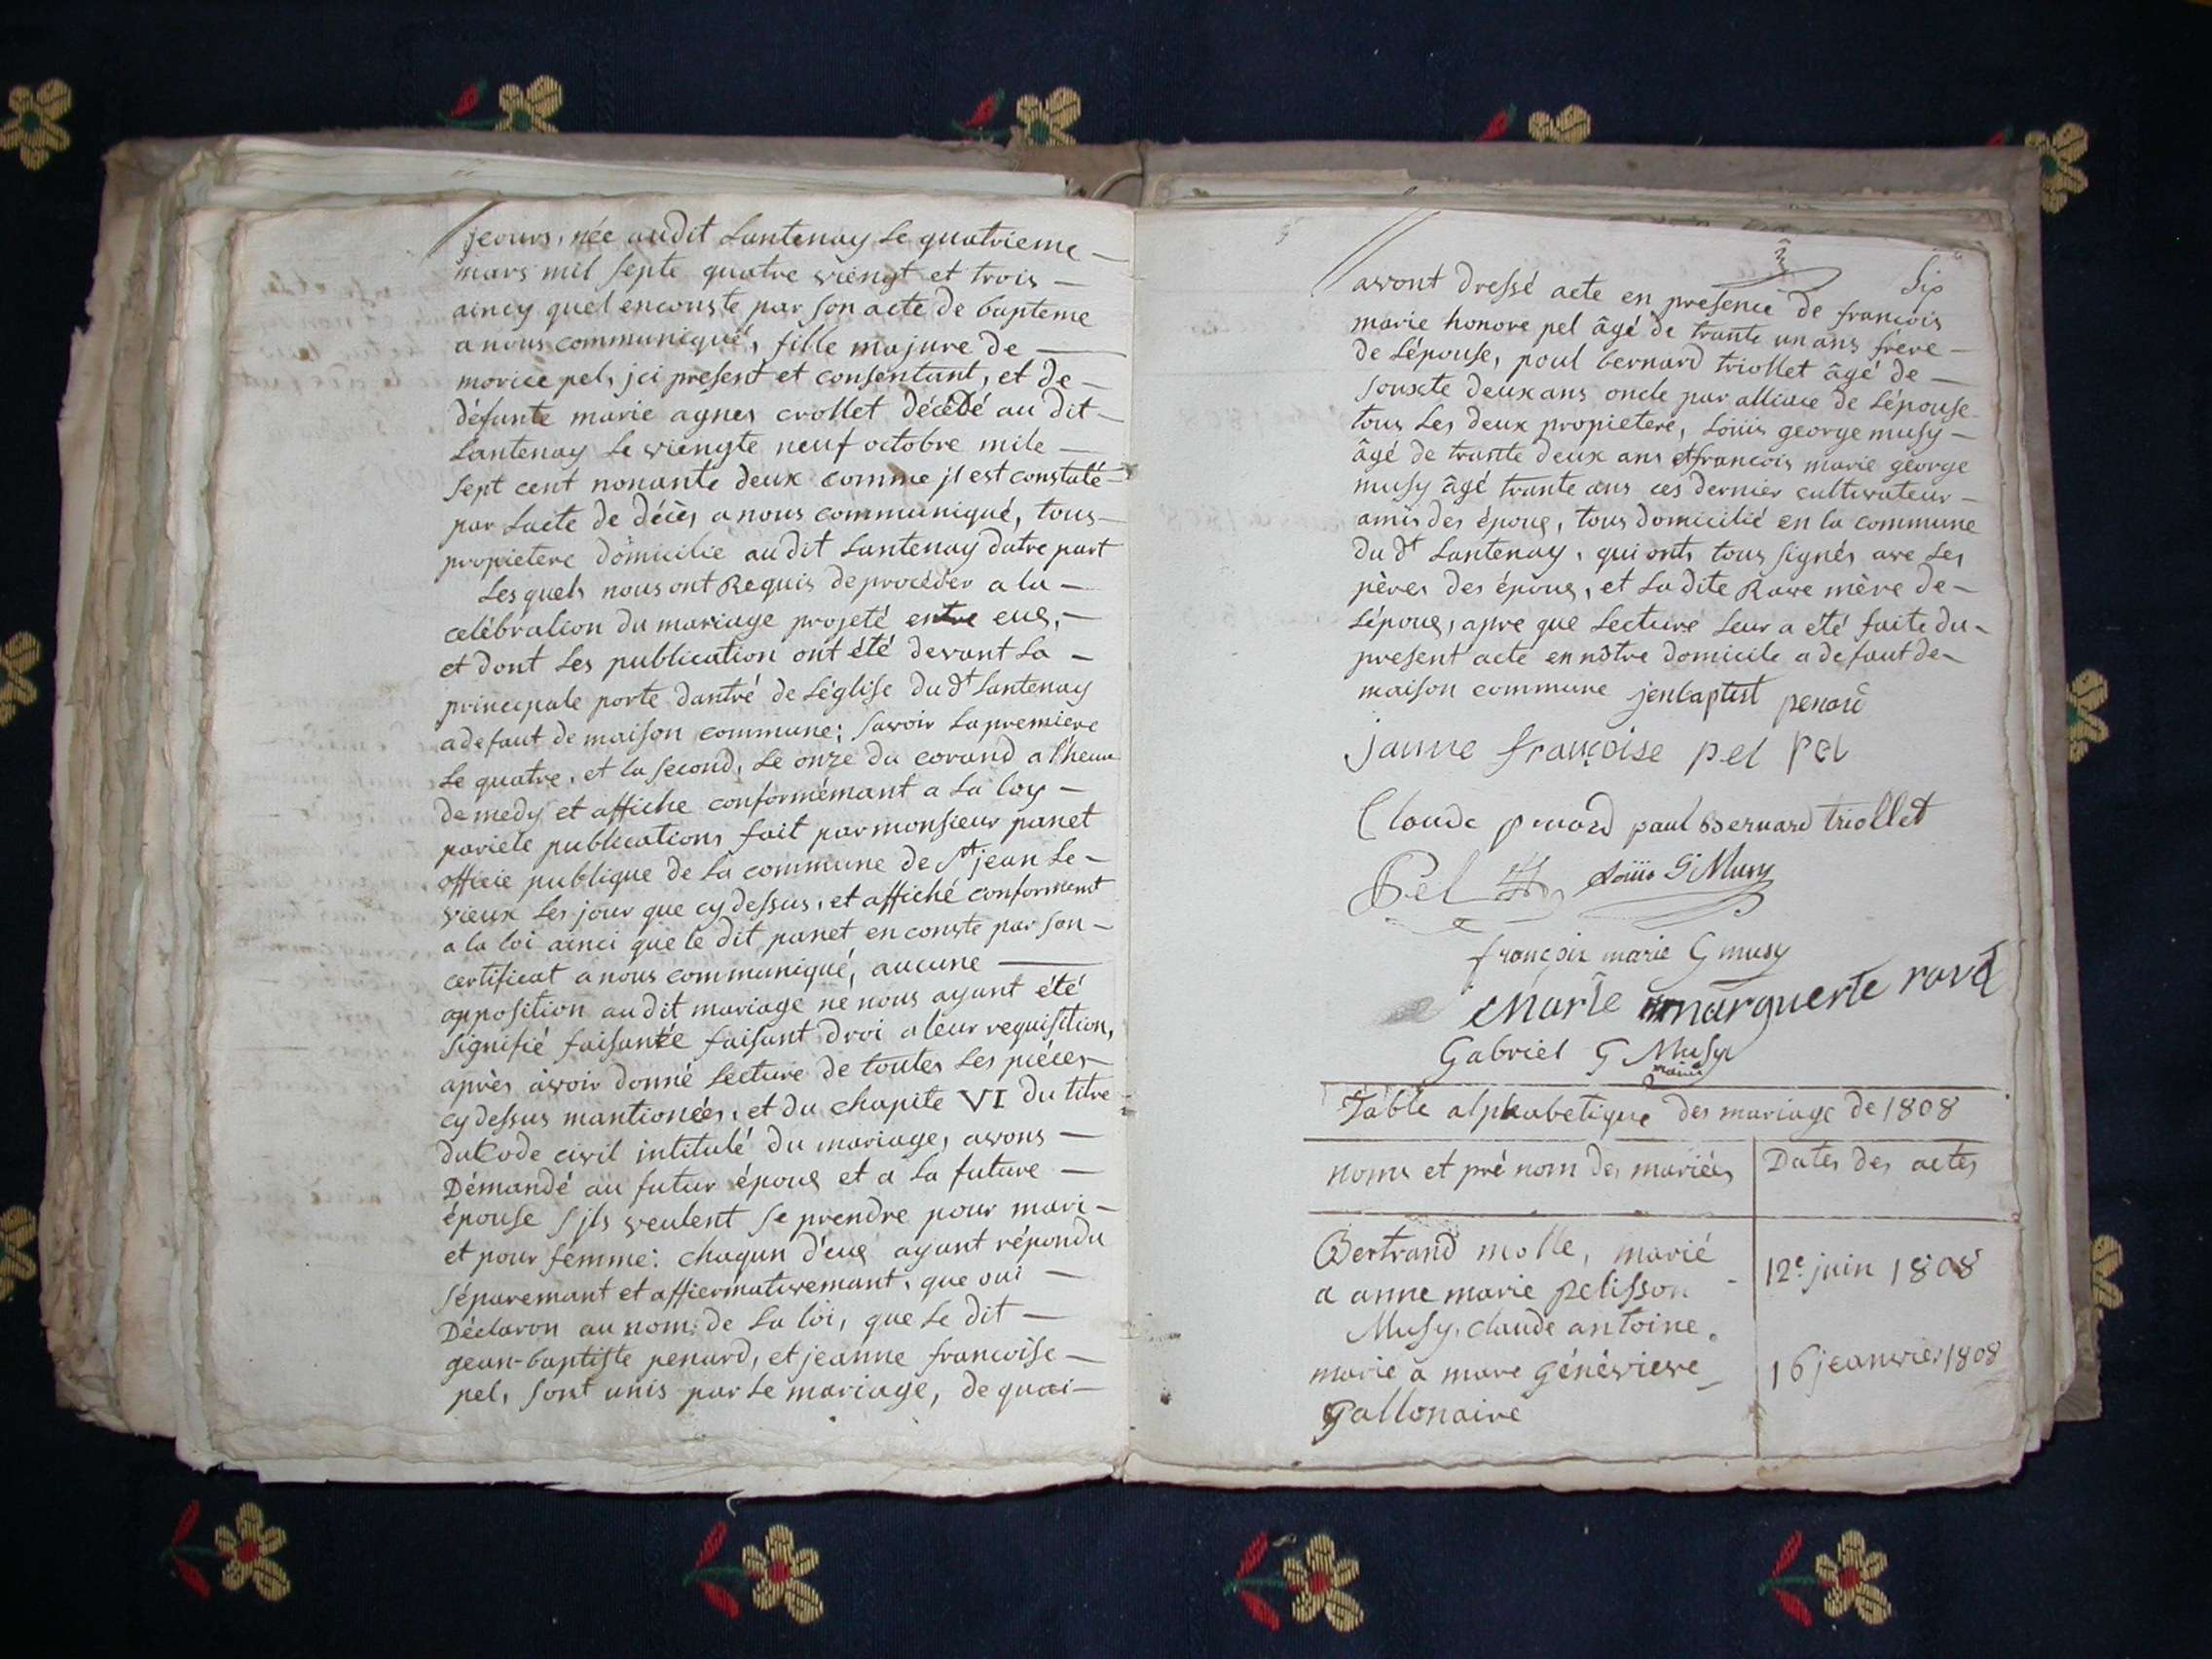 jeours, née audit Lantenay le quatrieme
mars mil septe quatre viengt et trois
aincy quel enconste par son acte de bapteme
a nous communiqué, fille majure de
morice pel, jci present et consentant, et de
défunte marie agnes crollet décédé au dit
Lantenay Le viengte neuf octobre mile
sept cent nonante deux comme jl est constaté
par Lacte de décès a nous communiqué, tous
propietere domicilie audit Lantenay datre part
Lesquels nous ont Requis de procéder a la
celébration du mariage projeté entre eux,
et dont Les publication ont été devant La
principale porte dantré de Léglise du dt Lantenay
a defaut de maison commune; savoir La premiere
Le quatre, et la second, Le onze du corand a l'heure
de medy et affiche conformémant a La loy
pariele publications fait par monsieur panet
officie publique de La commune de St jean Le
vieux Les jour que cy dessus, et affiché conformemt
a la loi ainci que le dit panet en conste par son
certificat a nous communiqué, aucune
opposition audit mariage ne nous ayant été
signifié faisante faisant droi a leur requisition,
après avoir donné Lecture de toutes Les piéces
cy dessus mantionées, et du chapite VI du titre
du Code civil intitulé du mariage, avons
Démandé au futur époux et a La future
épouse sjls veulent se prendre pour mari
et pour femme: chaqun d'eux ayant répondu
séparemant et affiermativemant, que oui
Déclaron au nom de La loi, que Le dit
gean-baptiste penard, et jeanne francoise
pel, sont unis par Le mariage, de quoi
3
Six
avont dressé acte en presence de francois
marie honore pel âgé de trante un ans frère
de Lépouse, poul bernard triollet âgé de
souxte deux ans oncle par alliace de Lépouse
tous Les deux propietere, Louis george musy
âgé de trante deux ans et francois marie george
musy âgé trante ans ces dernier cultivateur
amis des époux, tous domicilié en la commune
du dt Lantenay, qui ont tous signés ave Les
pères des époux, et La dite Rave mère de
Lépoux, apre que Lecture Leur a eté faite du
present acte en nôtre domicile a defaut de
maison commune jenbaptist penard
janne françoise pel pel
Claude penard paul Bernard triollet
Pel Louis G Musy
françois marie G musy
Marie marguerite rave
Gabriel G Musy
maire
Table alphabetique des mariage de 1808
noms et pré nom des mariées Dates des actes
Bertrand molle, marié
a anne marie pelisson 12e juin 1808
Musy, claude antoine
marie a mare Généviere 16 jeanvier 1808
Gallonaire